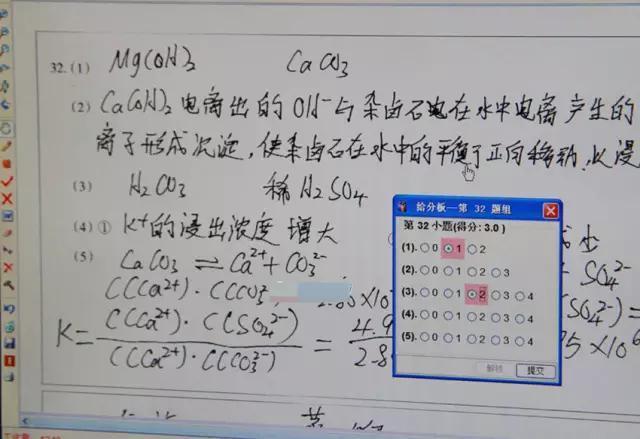 32.(1) Mg(OH)2 CaCO3
(2) Ca(OH)2电离出的OH-与杂卤石电在水中电离产生的
离子形成沉淀,使杂卤石在水中的平衡于正向移动,
(3) H2CO3 稀H2SO4
(4)① K+的浸出浓度 增大
(5) CaCO3 ⇌ Ca2+ + CO32-
C(Ca2+)·C(CO3
K= C(Ca2+)·C(SO42-) / C(Ca2+)·C(CO32-) = 4.9
2.8
SO42-
给分板—第 32 题组
第 32 小题(得分: 3.0 )
(1). 0 1 2
(2). 0 1 2 3
(3). 0 1 2 3 4
(4). 0 1 2 3 4
(5). 0 1 2 3 4
提交